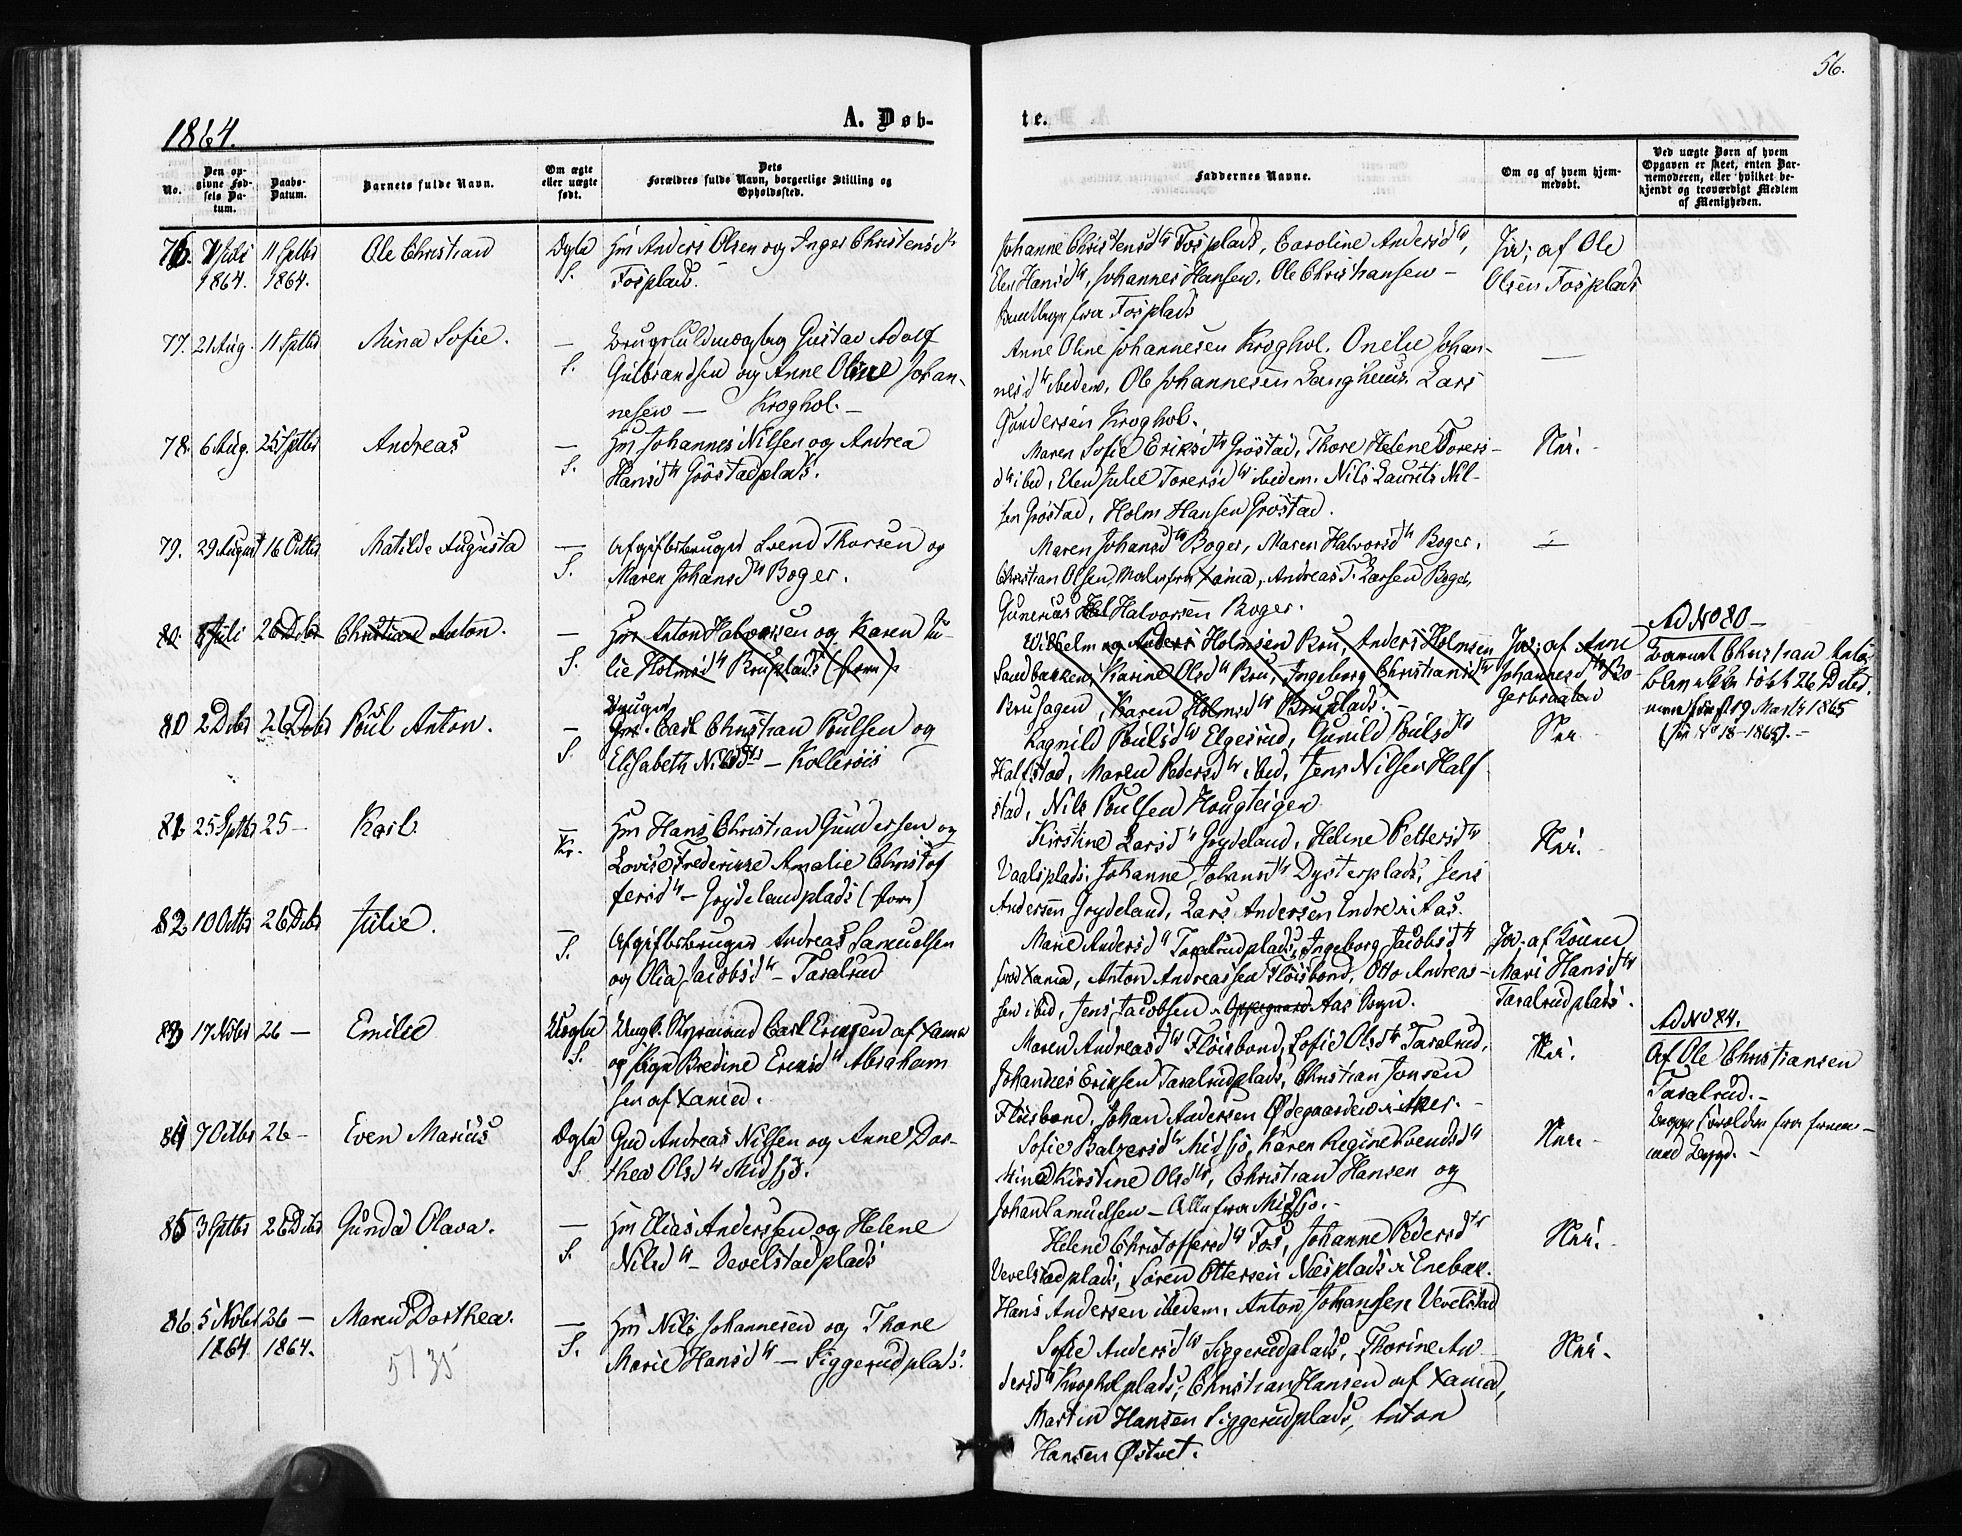 56.
1864.
A. Døb-
te.
No.
Den op-
givne Fød-
sels Da-
tum.
Daabs-
Datum.
Barnets fulde Navn.
Om ægte
eller uægte
født.
Dets
Forældres fulde Navn, borgerlige Stilling og
Opholdssted.
Faddernes Navne.
Om og af hvem hjem-
medøbt.
Ved uægte Børn af hvem
Opgaven er skeet, enten Bar-
nemoderen, eller hvilket be-
kjendt og troværdigt Medlem
af Menigheden.
76. 1 Juli 11 Septbr Ole Christian Ægte Hm Anders Olsen og Inger Christensdtr
1864. 1864. S. Fosplads.
Johanne Christensdtr Fosplads, Caroline Andersdtr,
Elen Hansdtr, Johannes Hansen, Ole Christiansen –
fra Fosplads
Ja; af Ole
Olsen Fosplads
77. 21 Aug. 11 Septbr Mina Sofie. — Gustav Adolf
S. Gulbrandsen og Anne Oline Johan-
nesen — Kroghol. —
Anne Oline Johannesen Kroghol. Onelie Johan-
nesdtr ibidem, Ole Johannesen Langhuus. Lars
Gundersen Kroghol.
—
78. 6 Aug. 25 Septbr Andreas — Hm Johannes Nilsen og Andrea
S. Hansdtr Grøstadplads.
Maren Sofie Eriksdtr Grøstad, Thore Helene Torers-
dtr ibid, Elen Julie Torersdtr ibidem. Nils Laurits Nil-
sen Grøstad, Holm Hansen Grøstad.
Nei.
79. 29 August 16 Octbr Matilde Augusta — Afgiftsbruger Svend Thorsen og
S. Maren Johansdtr Boger.
Maren Johansdtr Boger, Maren Halvorsdtr Boger,
Christian Olsen, Maler fra Xania, Andreas T. Larsen Boger,
Gunerius Halvorsen Boger.
—
80. Juli 26 Debr Christian Anton. — Hm Anton Halvorsen og Karen Ju-
S. lie Holmsdtr Bruplads (fam).
Wilhelm og Anders Holmsen Bru, Anders Holmsen
Sandbakken, Karine Olsdtr Bru, Ingeborg Christiansdtr
Brusagen, Karen Holmsdtr Bruplads.
Ja; af Anne
Johannesdtr Bo-
gerbraaten
Ad No 80 –
Barnet Christian Anton
blev ikke døbt 26 Debr
men først 19 Marts 1865
(see No 18 – 1865). –
80 2 Debr 26 Debr Poul Anton. — Bruger
Gm. Carl Christian Poulsen og
S. Elisabeth Nilsdtr — Kollerøis
Ragnild Poulsdtr Elgesrud, Gunild Poulsdtr
Halfstad, Maren Pedersdtr ibid, Jens Nilsen Half
stad, Nils Poulsen Hougteigen
Nei
81 25 Septbr 25 — Karl. — Hm Hans Christian Gundersen og
Kr. Lovise Frederikke Amalie Christof
fersdtr — Grydelandplads (fam)
Kirstine Larsdtr Grydeland, Helene Pettersdtr
Vaalsplads. Johanne Johansdtr Dysterplads, Jens
Andersen Grydeland, Lars Andersen Endre i Aas.
Nei.
82 10 Octbr 26 Debr Julie. — Afgiftsbruger Andreas Samuelsen
S. og Olia Jacobsdtr — Taralrud
Marie Andersdtr Taralrudplads, Ingeborg Jacobsdtr
fra Xania, Anton Andreassen Fløisbond, Otto Andreas-
sen ibid, Jens Jacobsen i Oppegaard Aas Sogn.
Ja; af Konen
Mari Hansdtr
Taralrudplads.
83 17 Novbr 26 — Emilie Uægte Ungk. Styrmand Carl Eriksen af Xania
S. og Pige Bredine Eriksdtr Abraham
sen af Xania.
Maren Andreasdtr Fløisbond, Sofie Olsdtr Taralrud,
Johannes Eriksen Taralrudplads, Christian Jonsen
Fløisbond, Johan Andersen Ødegaarden i Aker. –
Nei.
Ad No 84.
Af Ole Christiansen
Taralrud. –
Begge Forældre fra frem-
med Bygd. –
84 7 Octbr 26 — Even Marius Ægte Gmd Andreas Nilsen og Anne Dor-
S. thea Olsdtr Midsjø.
Sofie Balzersdtr Midsjø, Karen Regine Svendsdtr
Mina Kirstine Olsdtr, Christian Hansen og
Johan Samuelsen – Alle fra Midsjø. –
Nei. –
85 3 Septbr 26 Debr Gunda Olava. — Hm Elias Anderssen og Helene
S. Nilsdtr — Vevelstadplads
Helene Christoffersdtr Fos, Johanne Pedersdtr
Vevelstadplads, Søren Ottersen Næsplads i Enebak.
Hans Andersen ibidem, Anton Johansen Vevelstad
Nei.
86 5 Novbr 26 — Maren Dorthea. — Hm Nils Johannesen og Thore
1864 1864. S. Marie Hansdtr — Siggerudplads.
5135
Sofie Andersdtr Siggerudplads, Thorine An
dersdtr Krogholplads, Christian Hansen af Xania,
Martin Hansen Siggerudplads, Anton
Hansen Østvet.
Nei.